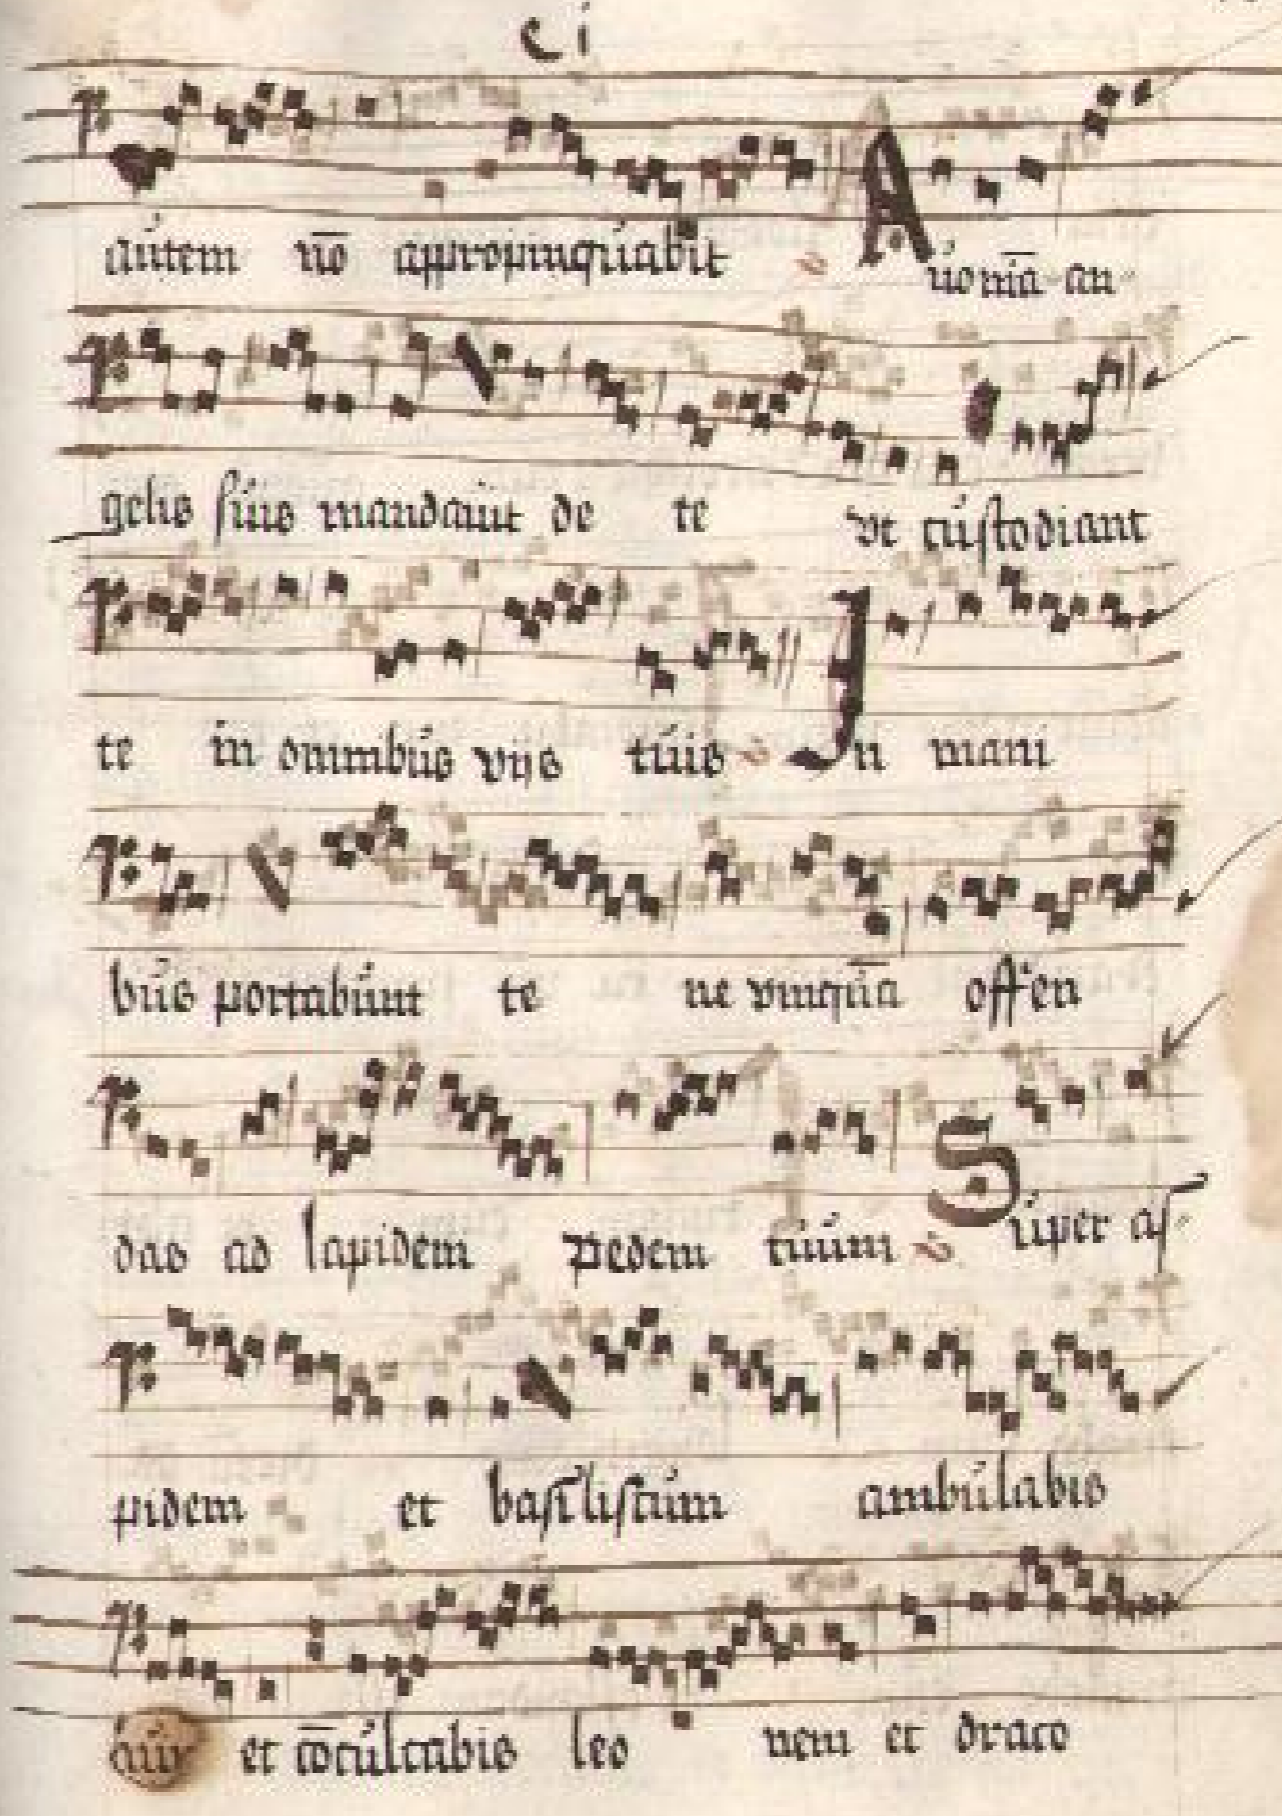 ci
autem nō appropinquabit Auoniā an
gelis suis mandauit de te vt custodiant
te in omnibus vijs tuis In mani
bus portabunt te ne vnquā offen
das ad lapidem pedem tuum Super as
pidem et basiliscum ambulabis
et cōculcabis leo nem et draco